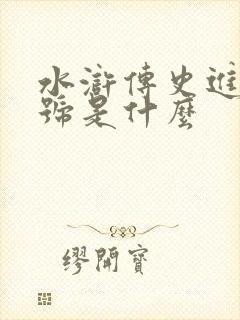 水滸傳史進
號是什麼
繆開寶